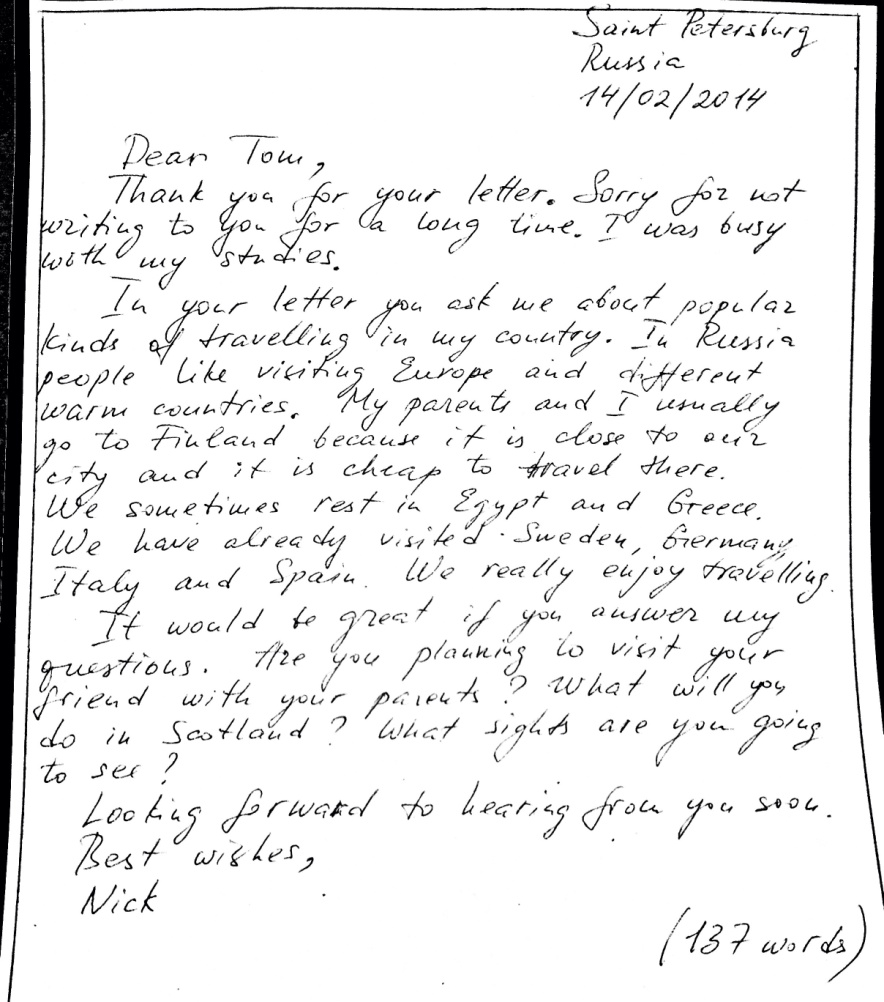 Saint Petersburg
Russia
14/02/2014
Dear Tom,
Thank you for your letter. Sorry for not
writing to you for a long time. I was busy
with my studies.
In your letter you ask me about popular
kinds of travelling in my country. In Russia
people like visiting Europe and different
warm countries. My parents and I usually
go to Finland because it is close to our
city and it is cheap to travel there.
We sometimes rest in Egypt and Greece.
We have already visited Sweden, Germany,
Italy and Spain. We really enjoy travelling.
It would be great if you answer my
questions. Are you planning to visit your
friend with your parents? What will you
do in Scotland? What sights are you going
to see?
Looking forward to hearing from you soon.
Best wishes,
Nick
(137 words)